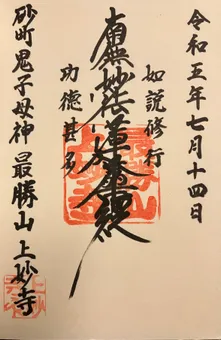 令和五年七月十四日
如説修行
南無妙法蓮華経
功徳甚多
砂町鬼子母神 最勝山 上妙寺